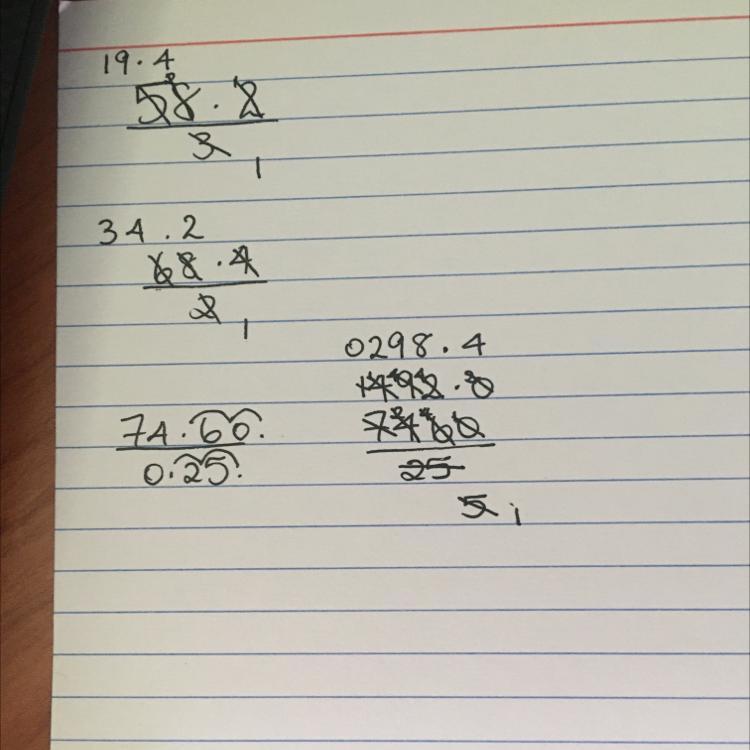 19.4
58.2
3
1
34.2
68.4
2
1
0298.4
1492.0
74.60.
7460
0.25.
25
5
1